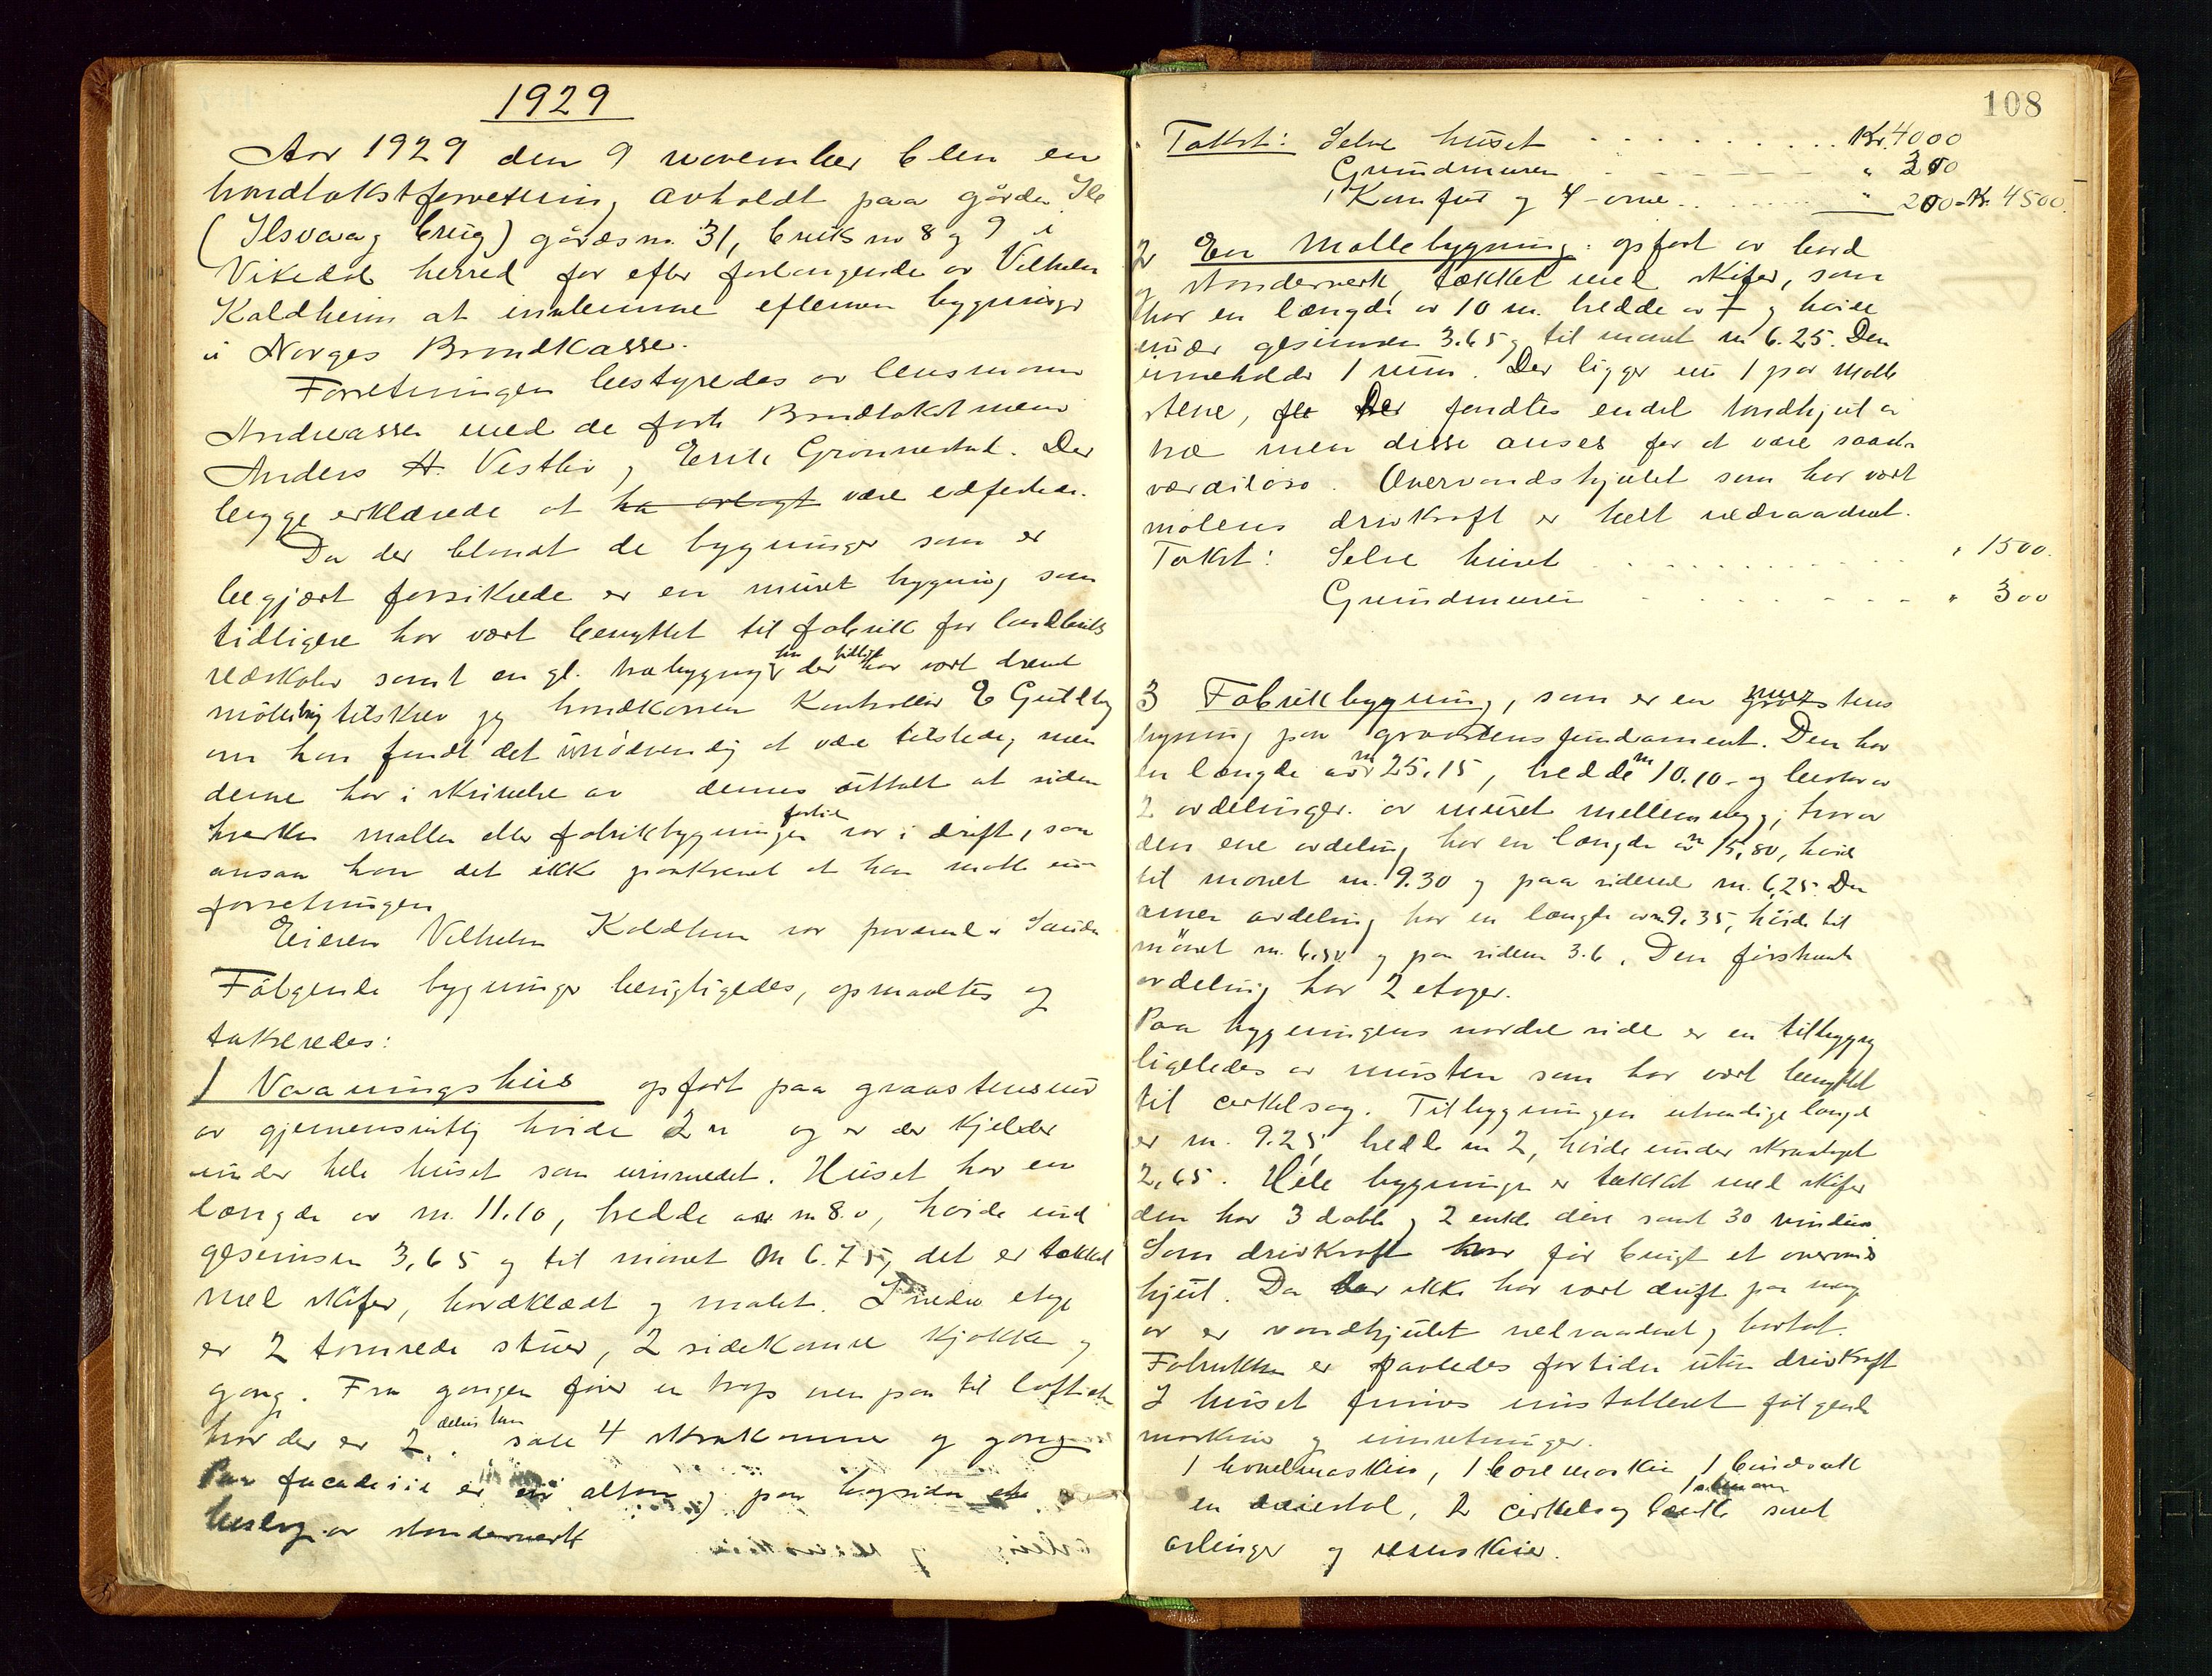 1929
Aar 1929 den 9 november blev en
brandtakstforretning avholdt paa gården Ile
(Ilsvaag brug) gårdsnr. 31, bruksnr 8 og 9 i
Vikedal herred for efter forlangende av Vilhelm
Kaldheim at innlemme efternevnte bygninger
i Norges Brandkasse.
Forretningen bestyredes av lensmann
Andreassen med de faste Brandtakstmenn
Anders H. Vestbø og Erik Grønnestad. De
begge erklærede at ha avlagt være edfestede.
Da der blandt de bygninger som er
begjært forsikrede er en muret bygning som
tidligere har vært benyttet til fabrik for landbruks
redskaper samt en gl. træbygning hvor der tidligere har vært drevet
möllebrug tilskrev jeg brandkassen Kontrollør E Gulltveg
om han fandt det unødvendig at være tilstede, men
denne har i skrivelse av dennes uttalt at siden
hverken møllen eller fabrikbygningen fortiden var i drift, saa
ansaa han det ikke paakrevet at han møtte ved
forretningen
Eieren Vilhelm Kaldheim var fraværende i Sauda
Følgende bygninger besigtigedes, opmaaltes og
takseredes:
1 Vaaningshus opført paa graastensmur
av gjennemsnitlig høide 2 m og er der kjelder
under hele huset som er innredet. Huset har en
længde av m. 11.10, bredde av m 8.0, høide under
gesimsen 3,65 og til mønet m 6.75, det er tækket
med skifer, bordklædt og malet. I nedre etage
er 2 tømrede stuer, 2 sidekamre kjøkken og
gang. Fra gangen fører en trap oven paa til loftet
hvor der er 2 sale 4 skraakamre og gang
Paa facadesiden er en altan og paa bagsiden et
bislag av standerverk
108
Takst: Selve huset . . . . . . . . . . Kr. 4000
Grundmuren - - - - - " 300
1 Komfur og 4 ovne . . . . . " 200 - Kr. 4500
2 En Møllebygning: opført av bord
og standerverk, tækket med skifer, som
har en længde av 10 m. bredde av 7 og høide
under gesimsen 3.65 og til mønet m 6.25. Den
inneholder 1 rum. Der ligger nu 1 par mølle
stene, Der fandtes endel tandhjul av
træ men disse anses for at være saadan
værdiløse. Overvandshjulet som har vært
møllens drivkraft er helt nedraadnet.
Takst: Selve huset . . . . . . . . . " 1500.
Grundmuren - - - - - - " 300
3 Fabrikbygning, som er en murstens
bygning paa graastensfundament. Den har
en længde av m 25,15, bredde m 10.10 - og bestaar av
2 avdelinger av muret mellemvegg; hvorav
den ene avdeling har en længde av m 15,80, høide
til mønet m. 9.30 og paa sidene m. 6,25 Den
annen avdeling har en længde av m 9.35, høide til
mønet m. 6,50 og paa sidene 3.6. Den førstnevnte
avdeling har 2 etager.
Paa bygningens nordre side er en tilbygning
ligeledes av mursten som har vært benyttet
til cirkelsag. Tilbygningen utvendige længde
er m. 9.25, bredde m 2, høide under skraataget
2,65. Hele bygningen er tækket med skifer
den har 3 doble og 2 enkle døre samt 30 vinduer
Som drivkraft har før brugt et overvands
hjul. Da der ikke har vært drift paa mange
aar er vandhjulet nedraadnet og bortat.
Fabrikken er saaledes fortiden uten drivkraft
I huset finnes installeret følgende
maskiner og innretninger.
1 høvelmaskin, 1 boremaskin, 1 båndsak
en dreiestol, 2 cirkelsag bænke samt
avlinger og